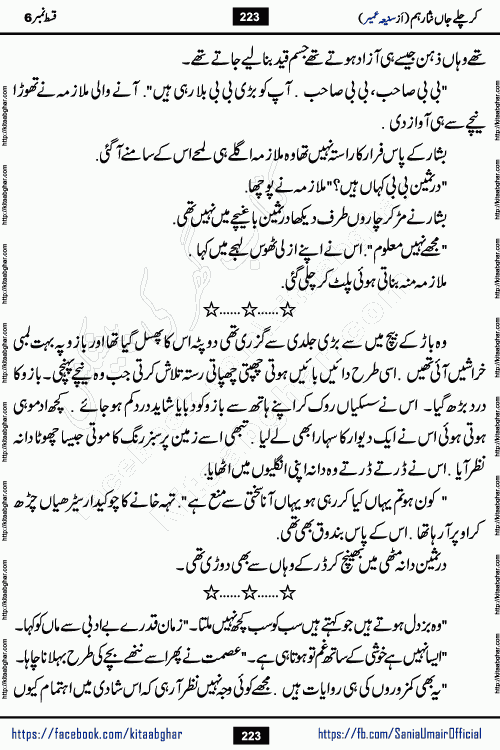 کر چلے جاں نثار ہم (از سنیعہ عمیر)
223
قسط نمبر 6
تھے وہاں ذہن جیسے ہی آزاد ہوتے تھے جسم قید بنا لیے جاتے تھے۔
"بی بی صاحب، بی بی صاحب ۔ آپ کو بڑی بی بی بلا رہی ہیں"۔ آنے والی ملازمہ نے تھوڑا
نیچے سے ہی آواز دی ۔
بشار کے پاس فرار کا راستہ نہیں تھا وہ ملازمہ اگلے ہی لمحے اس کے سامنے آ گئی۔
"در ثمین بی بی کہاں ہیں؟" ملازمہ نے پوچھا۔
بشار نے مڑ کر چاروں طرف دیکھا در ثمین باغیچے میں نہیں تھی۔
"مجھے نہیں معلوم"۔ اس نے اپنے ازلی ٹھوس لہجے میں کہا ۔
ملازمہ منہ بناتی ہوئی پلٹ کر چلی گئی۔
☆......☆......☆
وہ باڑ کے بیچ میں سے بڑی جلدی سے گزری تھی دوپٹہ اس کا پھسل گیا تھا اور بازو پہ بہت لمبی
خراشیں آئی تھیں ۔ اسی طرح دائیں بائیں ہوتی چھپتی چھپاتی رستہ تلاش کرتی جب وہ نیچے پہنچی۔ بازو کا
درد بڑھ گیا۔ اس نے سسکیاں روک کر اپنے ہاتھ سے بازو کو دبایا شاید درد کم ہو جائے ۔ کچھ ادھ موئی
ہوتی ہوئی اس نے ایک دیوار کا سہارا بھی لے لیا ۔ تبھی اسے زمین پر سبز رنگ کا موتی جیسا چھوٹا دانہ
نظر آیا ۔ اس نے ڈرتے ڈرتے وہ دانہ اپنی انگلیوں میں اٹھایا۔
"کون ہو تم یہاں کیا کر رہی ہو یہاں آنا سختی سے منع ہے"۔ تہہ خانے کا چوکیدار سیڑھیاں چڑھ
کر اوپر آ رہا تھا ۔ اس کے پاس بندوق بھی تھی۔
در ثمین دانہ مٹھی میں بھینچ کر ڈر کے وہاں سے بھی دوڑی تھی۔
☆......☆......☆
"وہ بزدل ہوتے ہیں جو کہتے ہیں سب کو سب کچھ نہیں ملتا۔" زمان قدرے بے ادبی سے ماں کو کہا۔
"ایسا نہیں ہے خوشی کے ساتھ غم تو ہوتا ہی ہے۔" عصمت نے پھر اسے ننھے بچے کی طرح بہلانا چاہا۔
"یہ بھی کمزوروں کی ہی روایات ہیں ۔ مجھے کوئی وجہ نہیں نظر آ رہی کہ اس شادی میں اہتمام کیوں
https://facebook.com/kitaabghar
223
https://fb.com/SaniaUmairOfficial
http://kitaabghar.com